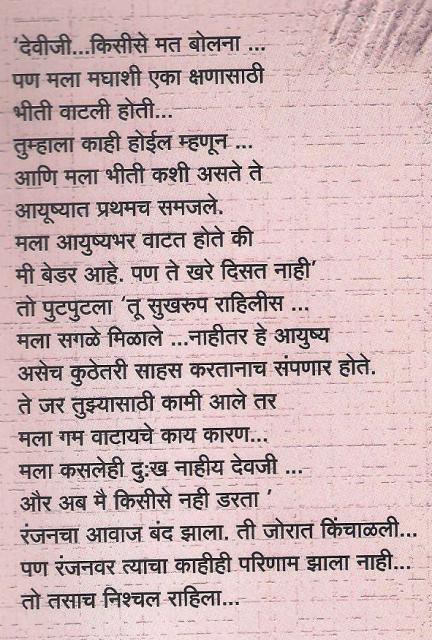 ‘देवीजी...किसीसे मत बोलना ...
पण मला मघाशी एका क्षणासाठी
भीती वाटली होती...
तुम्हाला काही होईल म्हणून ...
आणि मला भीती कशी असते ते
आयूष्यात प्रथमच समजले.
मला आयुष्यभर वाटत होते की
मी बेडर आहे. पण ते खरे दिसत नाही’
तो पुटपुटला ‘तू सुखरुप राहिलीस ...
मला सगळे मिळाले ...नाहीतर हे आयुष्य
असेच कुठेतरी साहस करतानाच संपणार होते.
ते जर तुझ्यासाठी कामी आले तर
मला गम वाटायचे काय कारण...
मला कसलेही दु:ख नाहीय देवजी ...
और अब मै किसीसे नही डरता ’
रंजनचा आवाज बंद झाला. ती जोरात किंचाळली...
पण रंजनवर त्याचा काहीही परिणाम झाला नाही...
तो तसाच निश्चल राहिला...